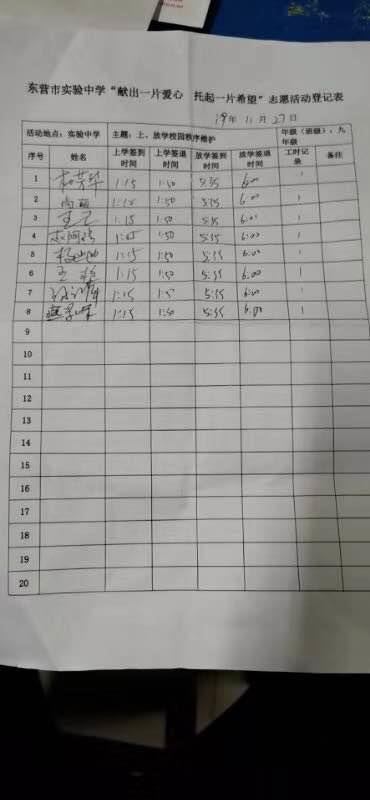 东营市实验中学“献出一片爱心 托起一片希望”志愿活动登记表
19年 11月 27日
活动地点：实验中学 主题：上、放学校园秩序维护 年级（班级）：九年级
序号 姓名 上学签到时间 上学签退时间 放学签到时间 放学签退时间 工时记录 备注
1 1:15 1:50 5:35 6:00 1
2 尚丽 1:15 1:50 5:35 6:00 1
3 1:15 1:50 5:35 6:00 1
4 1:15 1:50 5:35 6:00 1
5 1:15 1:50 5:35 6:00 1
6 王 1:15 1:50 5:35 6:00 1
7 1:15 1:50 5:35 6:00 1
8 1:15 1:50 5:35 6:00 1
9
10
11
12
13
14
15
16
17
18
19
20